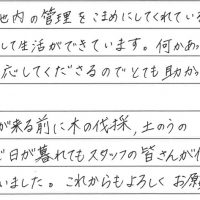 地内の管理をこまめにしてくれている
して生活ができています。何かあっ
応してくださるのでとても助か
が来る前に木の伐採，土のうの
ど日が暮れてもスタッフの皆さんが
いました。これからもよろしくお願